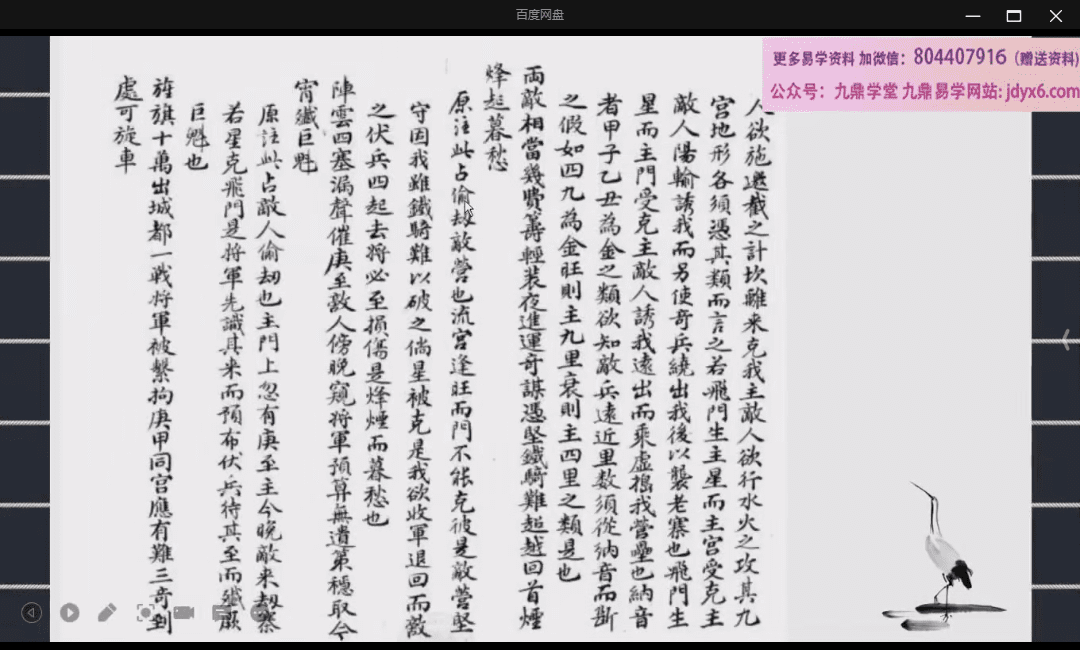 百度网盘
更多易学资料 加微信：804407916（赠送资料)
公众号：九鼎学堂 九鼎易学网站: jdyx6.com
人欲施邀截之計坎離来克我主敵人欲行水火之攻其九
宮地形各須憑其類而言之若飛門生主星而主宮受克主
敵人陽輸誘我而另使奇兵繞出我後以襲老寨也飛門生
星而主門受克主敵人誘我遠出而乘虚搗我营壘也納音
者甲子乙丑為金之類欲知敵兵遠近里数須從納音而断
之假如四九為金旺則主九里衰則主四里之類是也
両敵相當幾費籌輕装夜進運奇謀憑堅鐵騎難超越回首煙
烽起暮愁
原注此占偷劫敵營也流宮逢旺而門不能克彼是敵營堅
守固我雖鐵騎難以破之倘星被克是我欲收軍退回而敵
之伏兵四起去將必至損傷是烽煙而暮愁也
陣雲四塞漏聲催庚至敌人傍晚窺将軍預算無遺策穩取今
宵殲巨魁
原注此占敵人偷劫也主門上忽有庚至主今晚敵来劫寨
若星克飛門是将軍先識其来而預布伏兵待其至而殲厥
巨魁也
旌旗十萬出城都一戰将軍被繫拘庚甲同宮應有難三奇到
處可旋車